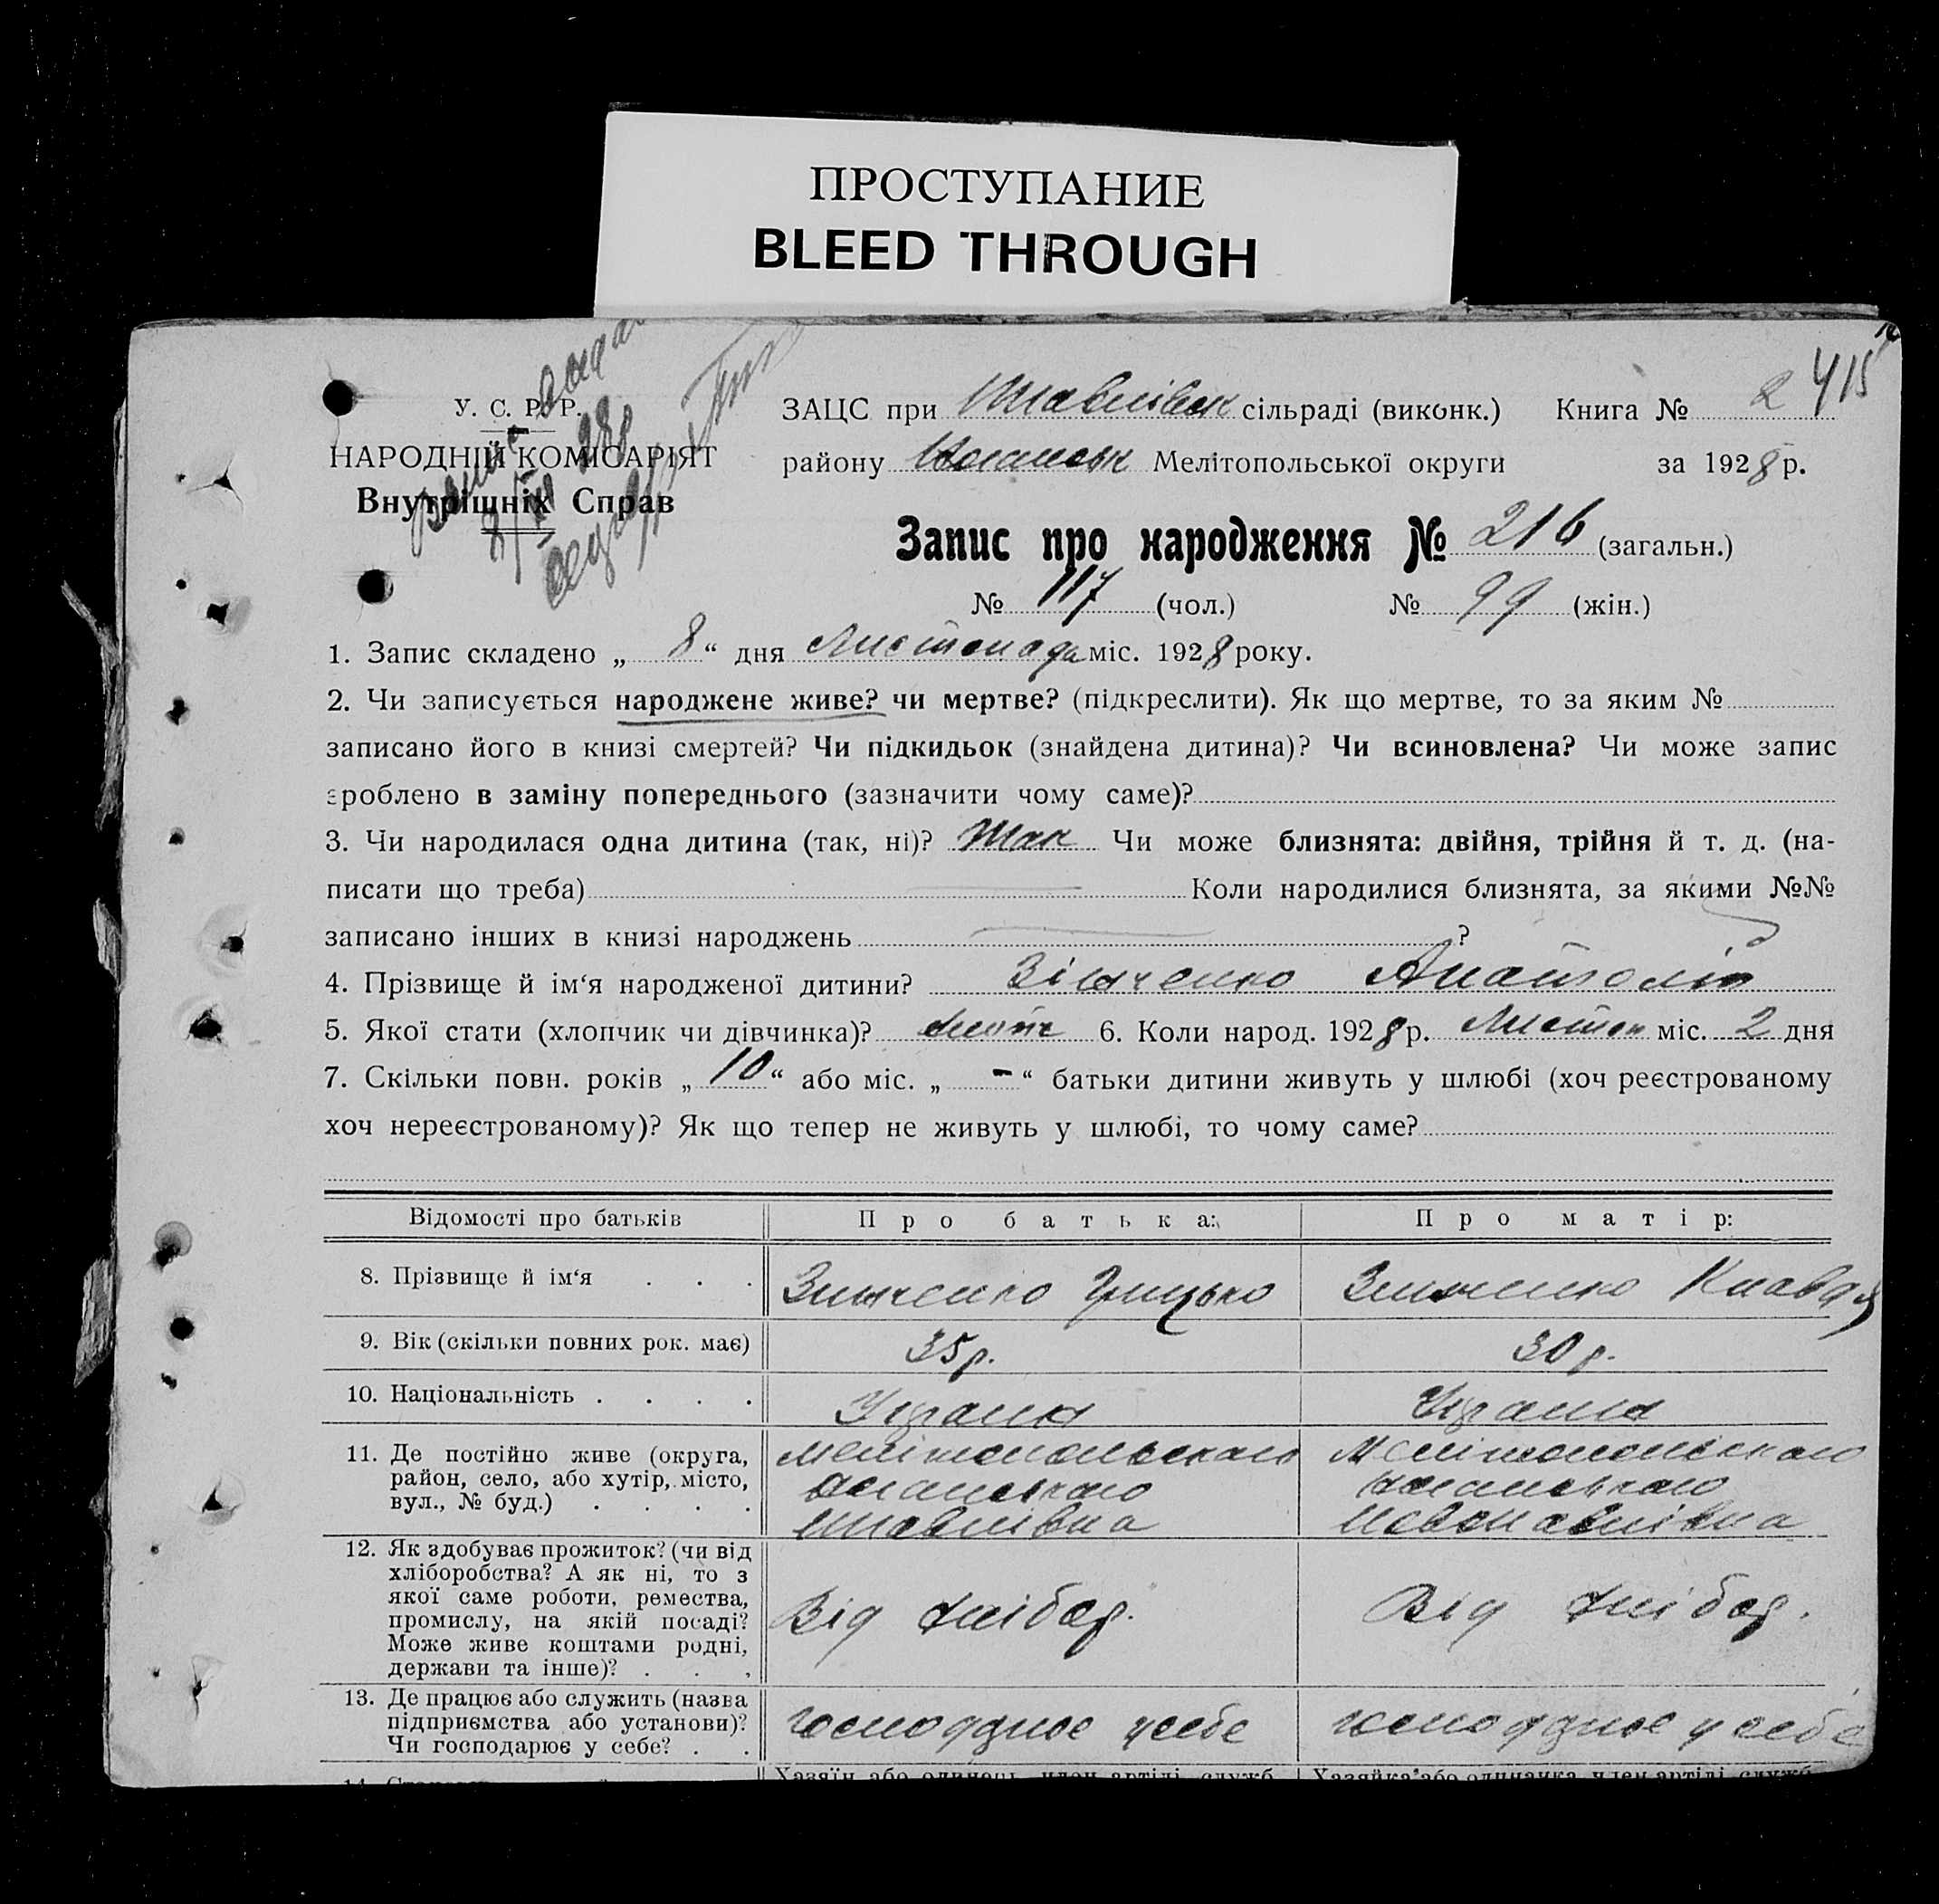 ПРОСТУПАНИЕ
BLEED THROUGH
2 415
У. С. Р. Р.
НАРОДНІЙ КОМІСАРІЯТ
Внутрішніх Справ
ЗАЦС при сільраді (виконк.) Книга №
району Мелітопольської округи за 1928 р.
Запис про народження № 216 (загальн.)
№ 117 (чол.) № 99 (жін.)
1. Запис складено „ 8 “ дня Листопада міс. 1928 року.
2. Чи записується народжене живе? чи мертве? (підкреслити). Як що мертве, то за яким №
записано його в книзі смертей? Чи підкидьок (знайдена дитина)? Чи всиновлена? Чи може запис
зроблено в заміну попереднього (зазначити чому саме)?
3. Чи народилася одна дитина (так, ні)? Так Чи може близнята: двійня, трійня й т. д. (на-
писати що треба) Коли народилися близнята, за якими №№
записано інших в книзі народжень ?
4. Прізвище й ім‘я народженої дитини? Зінченко Анатолій
5. Якої стати (хлопчик чи дівчинка)? 6. Коли народ. 1928 р. Листоп міс. 2 дня
7. Скільки повн. років „ 10 “ або міс. „ - “ батьки дитини живуть у шлюбі (хоч реєстрованому
хоч нереєстрованому)? Як що тепер не живуть у шлюбі, то чому саме?
Відомості про батьків Про батька: Про матір:
8. Прізвище й ім‘я . . . Зинченко Грицько Зинченко Клавдя
9. Вік (скільки повних рок. має) 35 р. 30 р.
10. Національність . . . . Україн Україн
11. Де постійно живе (округа, Мелітопольского Мелітопольского
район, село, або хутір, місто,
вул., № буд.) . . . .
12. Як здобуває прожиток? (чи від
хліборобства? А як ні, то з
якої саме роботи, ремества,
промислу, на якій посаді? Від хлібор. Від хлібор.
Може живе коштами родні,
держави та інше)? . . .
13. Де працює або служить (назва
підприємства або установи)? господарює у себе господарює у себе
Чи господарює у себе? . .
Хазяїн або одинець, член артілі, служб. Хазяйка або одиначка, член артілі, служб.